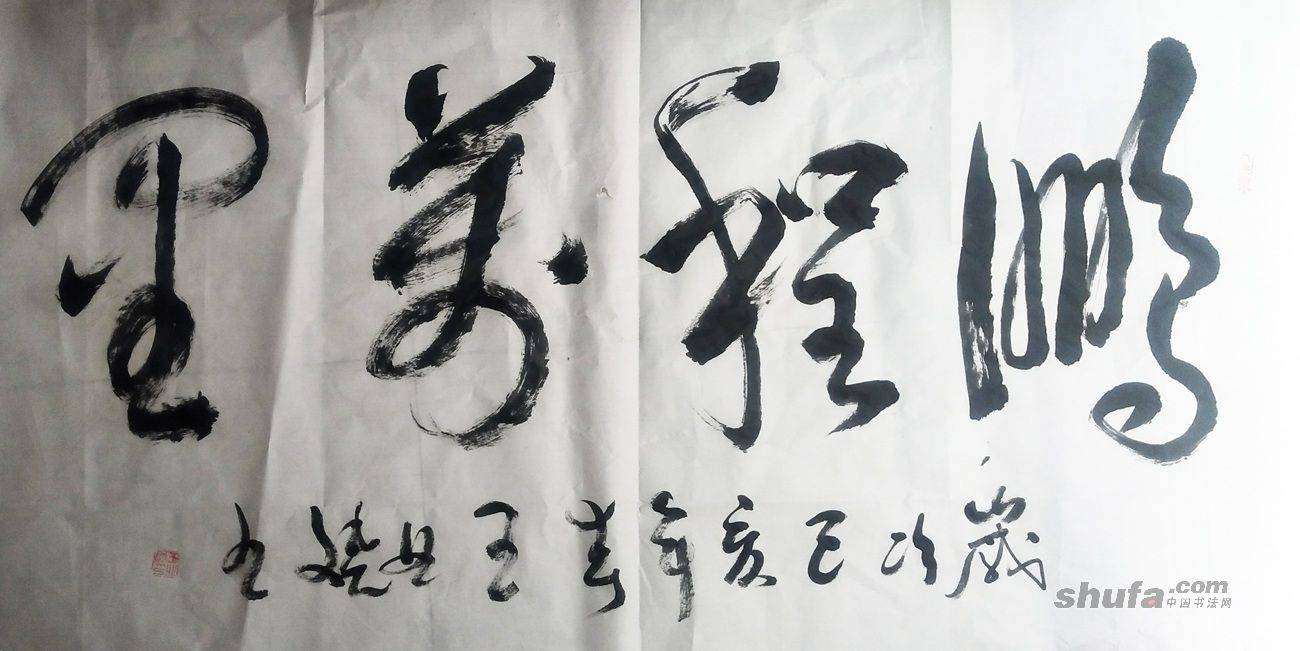 鹏程萬里
歲次己亥年春王
shufa.com
中国书法网